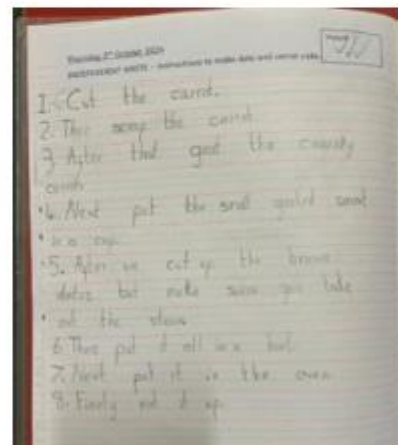 Thursday 3rd October 2024
INDEPENDENT WRITE - Instructions to make date and carrot cake
1. Cut the carrot.
2. Then the carrot.
3. After that the
4. Next put the small carrot
in a cup.
5. After we cut up the brown
dates but make sure you take
out the stons
6. Then put it all in a bowl.
7. Next put it in the oven.
8. Finely it up.